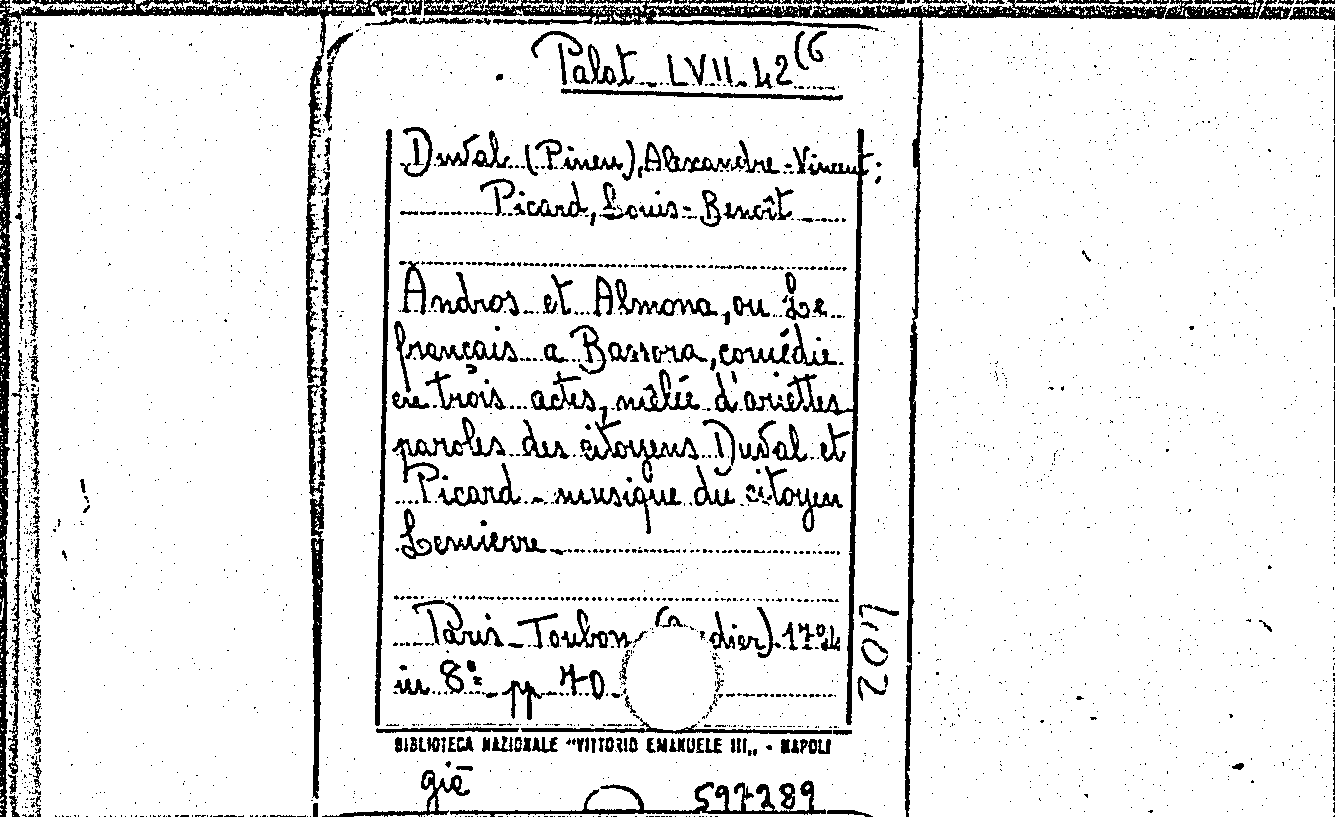 Palat. LVII. 42 (6
Duval (Pineu), Alexandre-Vincent;
Picard, Louis-Benoît
Andros et Almona, ou Le
français a Bassora, comédie
en trois actes, mêlée d'ariettes
paroles des citoyens Duval et
Picard - musique du citoyen
Lemierre
Paris - Toubon 1794
in 8º pp 70
402
BIBLIOTECA NAZIONALE "VITTORIO EMANUELE III" - NAPOLI
già
597289